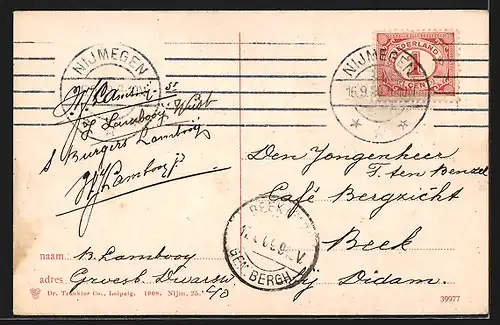 NIJMEGEN
NIJMEGEN
NEDERLAND
1
CENT
16.9.
Lambooy
Lambooy
Burgers Lambooy
Lambooy
Den Jongenheer
F. ten Benzel
Café Bergzicht
Beek
bij Didam.
BEEK
GEM BERGH
naam B. Lambooy
adres Groesb. Dwarsw.
40
Dr. Trenkler Co., Leipzig. 1908. Nijm. 25.
39977